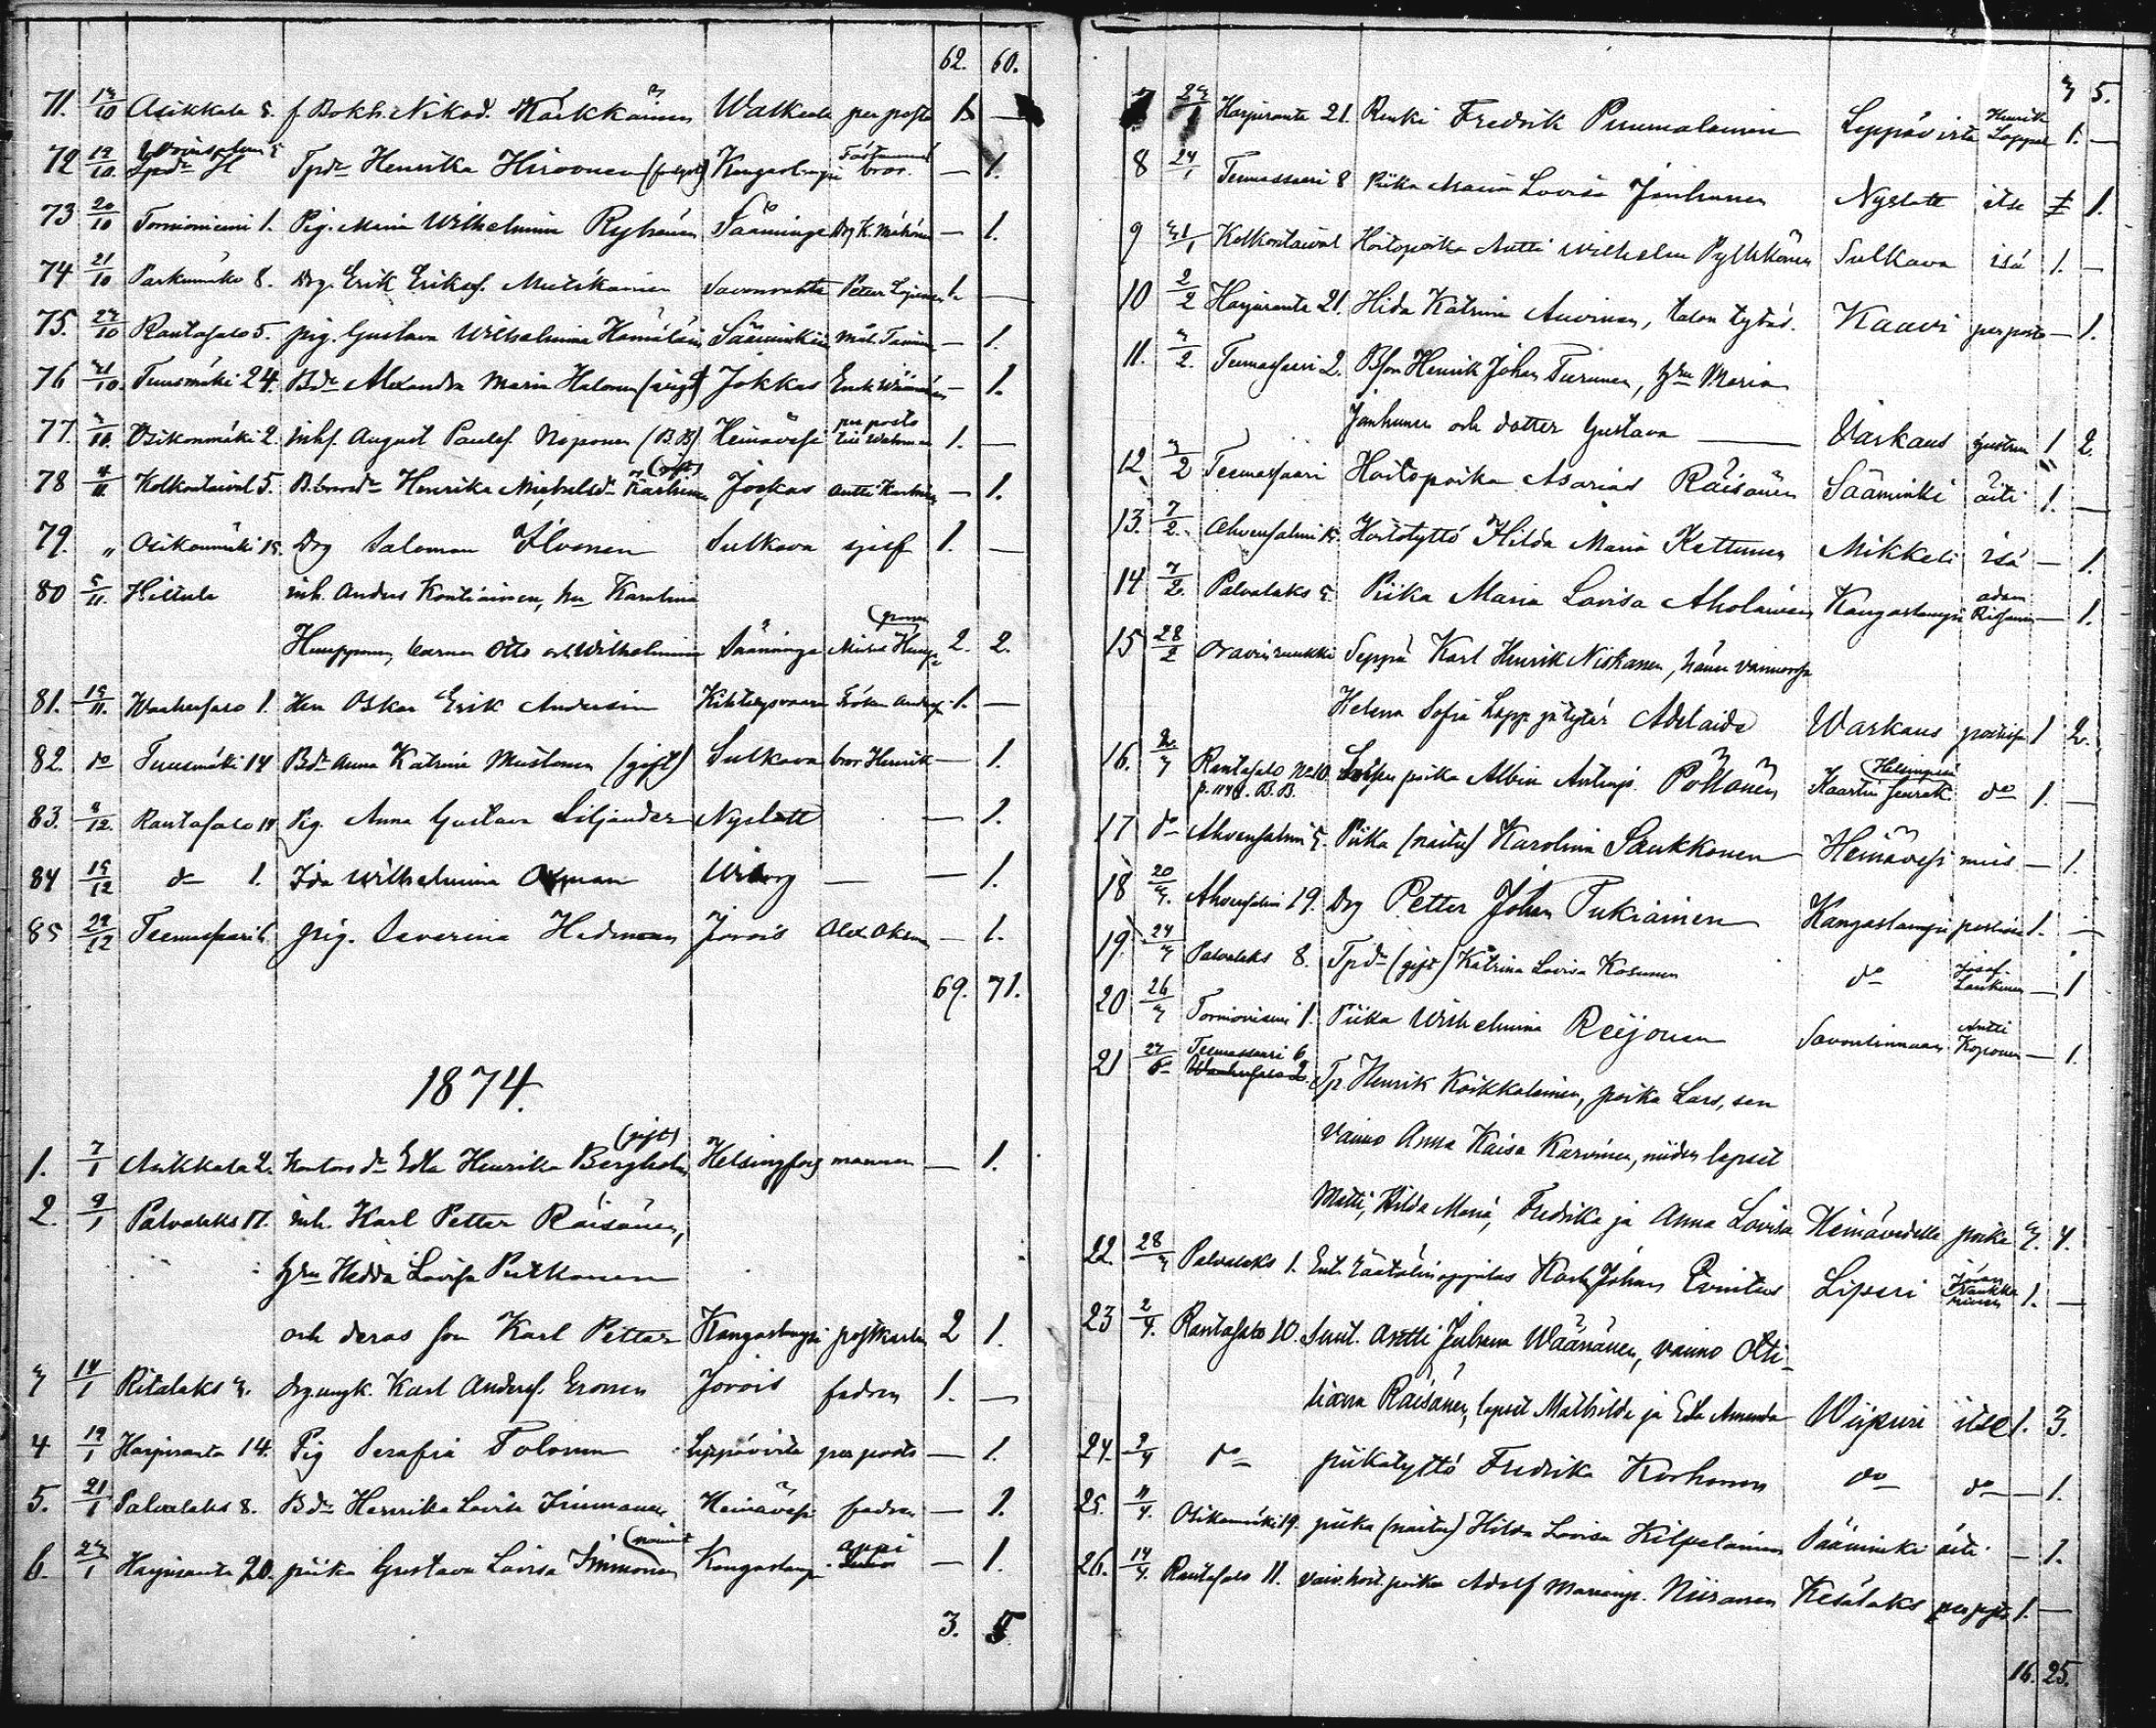 62. 60.
71. 13/10 Asikkala 5. f. Bokh. Nikod. Kärkkäinen Walkeala per posto 1. —
72 19/10. Tpdr Henrika Hirvonen Kangaslampi bror. — 1.
73 20/10 Tornioniemi 1. Pig. Maria Wilhelmina Ryhänen Sääminge Drg K. — 1.
74 21/10 Parkumäki 8. Drg. Erik Eriksf. Mutikainen Savonranta Petter 1. —
75. 27/10 Rantasalo 5. pig. Gustava Wilhelmina Hämäläin Sääminkiin — 1.
76 31/10. Tuusmäki 24. Bdr Alexandra Maria Halonen (vigt) Jokkas — 1.
77. 3/11. Osikonmäki 2. inhs. August Paulsf. Noponen (B.B.) Heinävesi per posto 1. —
78 4/11. Kolkontaival 5. Henrika Michelsdr Karhinen (gift) Jockas Antti Karhinen — 1.
79. „ Osikonmäki 15. Drg Salomon Ilvonen Sulkava sjelf 1. —
80 5/11. Hiltula inh. Anders Kontiainen, hu Karolina
Huupponen, barnen Otto och Wilhelmina Sääminge 2. 2.
81. 19/11. Waahersalo 1. Herr Oskar Erik Andersin Kihtelysvaara Fröken 1. —
82. do Tuusmäki 14 Bdr Anna Katrina Mustonen (gift) Sulkava bror Henrik — 1.
83. 8/12. Rantasalo 14 Pig. Anna Gustava Liljander Nyslott — 1.
84 15/12 do 1. Ida Wilhelmina Wiborg — — 1.
85 29/12 Teemassaari 6. pig. Severina Hedman Jorois Alex. — 1.
69. 71.
1874.
1. 7/1 Asikkala 2. Kontors dr Edla Henrika Bergholm (gift) Helsingfors mannen — 1.
2. 9/1 Palvalaks 17. inh. Karl Petter Räisänen,
hru Hedda Lovisa Putkonen
och deras son Karl Petter Kangaslampi 2 1.
3 14/1 Ritalaks 3. Karl Andersf. Eronen Jorois fadren 1. —
4 19/1 Harjuranta 14. Pig Serafia Tolonen Leppävirta per posto — 1.
5. 21/1 Palvalaks 8. Bdr Henrika Lovisa Heinävesi fadren — 1.
6. 23/1 Harjuranta 20. piika Gustava Lovisa Immonen Kangaslampi appi — 1.
3. 5
3 5.
7 23/1 Harjuranta 21. Renki Fredrik Puumalainen Leppävirta Henrik 1. —
8 24/1 Teemassaari 8 Piika Maria Lovisa Janhunen Nyslott itse 1.
9 31/1 Kolkontaival Hoitopoika Antti Wilhelm Pylkkönen Sulkava isä 1. —
10 2/2 Harjuranta 21. Hida Katrina Auvinen, talon tytär. Kaavi per posto — 1.
11. 3/2. Teemassaari 2. Bson Henrik Johan Tiirunen, hru Maria
Janhunen och dotter Gustava — Varkaus 1 2.
12. 3/2 Teemassaari Hoitopoika Asarias Räisänen Sääminki äiti 1. —
13. 7/2. Ahvensalmi 15. Hoitotyttö Hilda Maria Kettunen Mikkeli isä — 1.
14 7/2. Palvalaks 5. Piika Maria Lovisa Aholainen Kangaslampi adam — 1.
15 28/2 Oravin ruukki Seppä Karl Henrik Niskanen, hänen vaimonsa
Helena Sofia Lapp. ja tytär Adelaide Warkaus 1 2.
16. 2/3 Rantasalo No 10. p. 114. B.B. poika Albin Pöllänen Helsingissä Kaartin seurak. do 1. —
17 do Ahvensalmi 5. Piika (naitu) Karolina Saukkonen Heinävesi mies — 1.
18 20/3. Ahvensalmi 19. Drg Petter Johan Tukiainen Kangaslampi 1. —
19. 24/3 Palvalaks 8. Tpdr (gift) Katrina Lovisa Kosunen do Josef. — 1
20 26/3 Tornioniemi 1. Piika Wilhelmina Reijonen Savonlinnaan Antti Koponen — 1.
21 27/3 Teemassaari 6 Tp. Henrik Koikkalainen, poika Lars, sen
vaimo Anna Kaisa Karvinen, niiden lapset
Matti, Hilda Maria, Fredrika ja Anna Lovisa Heinävedelle poika 3. 4.
22. 28/3 Palvalaks 1. Ent. räätälinoppilas Karl Johan Liperi Johan 1. —
23 2/4. Rantasalo 10. Antti Juhana Wäänänen, vaimo Otti-
liaana Räisänen, lapset Mathilda ja Eda Amanda Wiipuri itse 1. 3.
24. 2/4 do piikatyttö Fredrika Korhonen do do — 1.
25. 11/4. Osikonmäki 19. piika (naitu) Hilda Lovisa Kilpeläinen Sääminki äiti — 1.
26. 14/4. Rantasalo 11. vaiv. hoit. poika Adolf Niiranen Kesälaks per posto 1. —
16. 25.